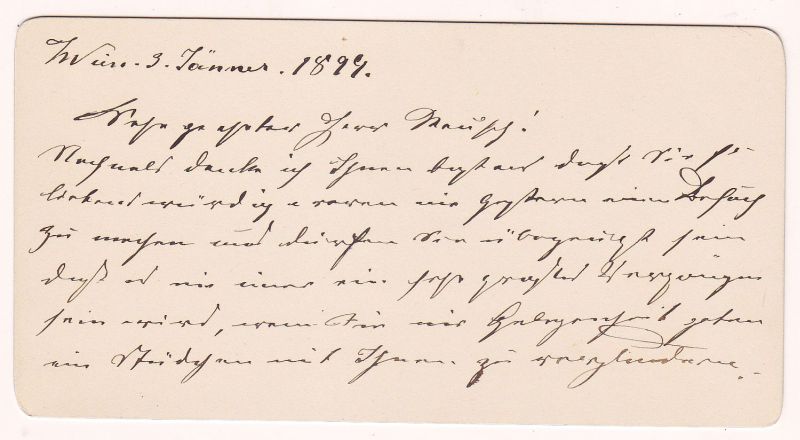 Wien. 3. Jänner. 1899.
Sehr geehrter Herr Reusch!
Nochmals danke ich Ihnen bestens daß Sie so
liebenswürdig waren mir gestern einen Besuch
zu machen und dürfen Sie überzeugt sein
daß es mir immer ein sehr großes Vergnügen
sein wird, wenn Sie mir Gelegenheit geben
ein Stündchen mit Ihnen zu verplaudern.